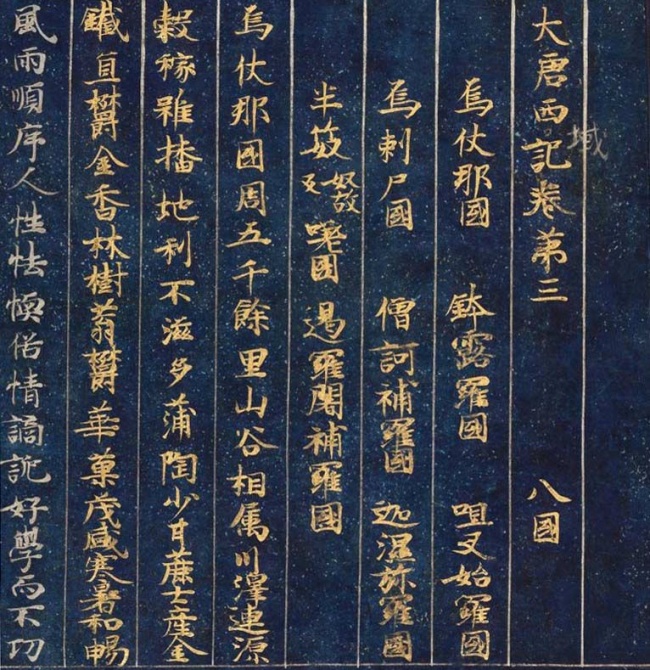 大唐西域記卷第三 八國
烏仗那國 鉢露羅國 咀叉始羅國
烏剌尸國 僧訶補羅國 迦濕弥羅國
半笯奴故反嗟國 遏羅闍補羅國
烏仗那國周五千餘里山谷相属川澤連源
穀稼雖播地利不滋多蒲陶少甘蔗土産金
鐵宜欝金香林樹蓊欝華菓茂盛寒暑和暢
風雨順序人性怯愞俗情譎詭好學而不功